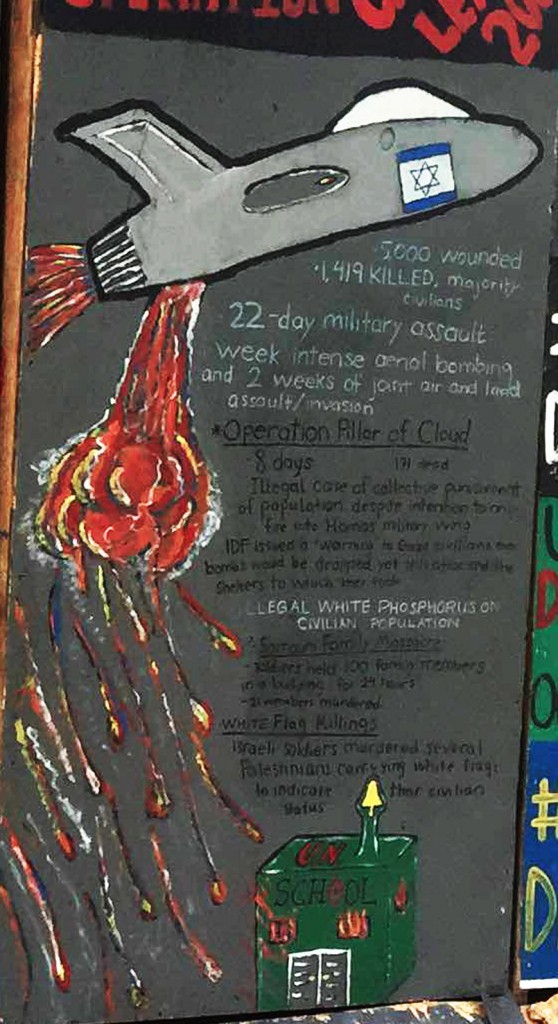 OPERATION
5000 wounded
· 1,419 KILLED, majority
civilians
· 22-day military assault
week intense aerial bombing
and 2 weeks of joint air and land
assault/invasion
*Operation Pillar of Cloud
· 8 days 171 dead
Illegal case of collective punishment
of population, despite intention to only
fire into Hamas military wing
IDF issued a warning to Gaza civilians
bombs would be dropped yet still and the
shelters to which they
ILLEGAL WHITE PHOSPHORUS ON
CIVILIAN POPULATION
Family Massacre
- soldiers held 100 family members
in a building for 24 hours
- 21 members murdered
WHITE Flag Killings
Israeli soldiers murdered several
Palestinians carrying white flags
to indicate their civilian
status
UN
SCHOOL